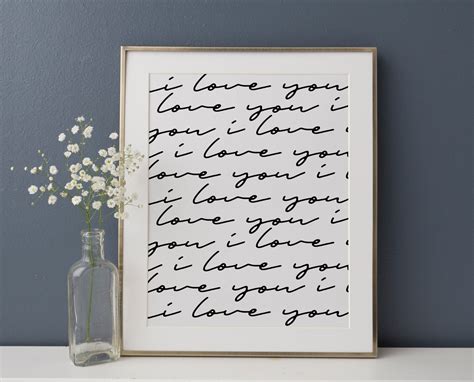 i love you
love you i
you i love
i love you
i love you
i love you
love you i
you i love
i love you
i love you
i love you